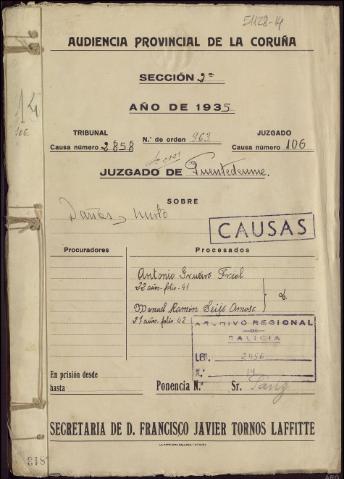 51128-14
AUDIENCIA PROVINCIAL DE LA CORUÑA
SECCIÓN 2ª
AÑO DE 1935
14
106
TRIBUNAL
Causa número 2858
N.º de orden 963
JUZGADO
Causa número 106
JUZGADO DE Puentedeume.
SOBRE
Daños y hurto
CAUSAS
Procuradores
Procesados
Antonio Freal
22 años-folio-41
Manuel Ramón Seijo
21 años-folio 42
ARCHIVO REGIONAL
DE
GALICIA
LEG. 2456
N.º 14
En prisión desde
hasta
Ponencia N.º
Sr. Sanz
SECRETARIA DE D. FRANCISCO JAVIER TORNOS LAFFITTE